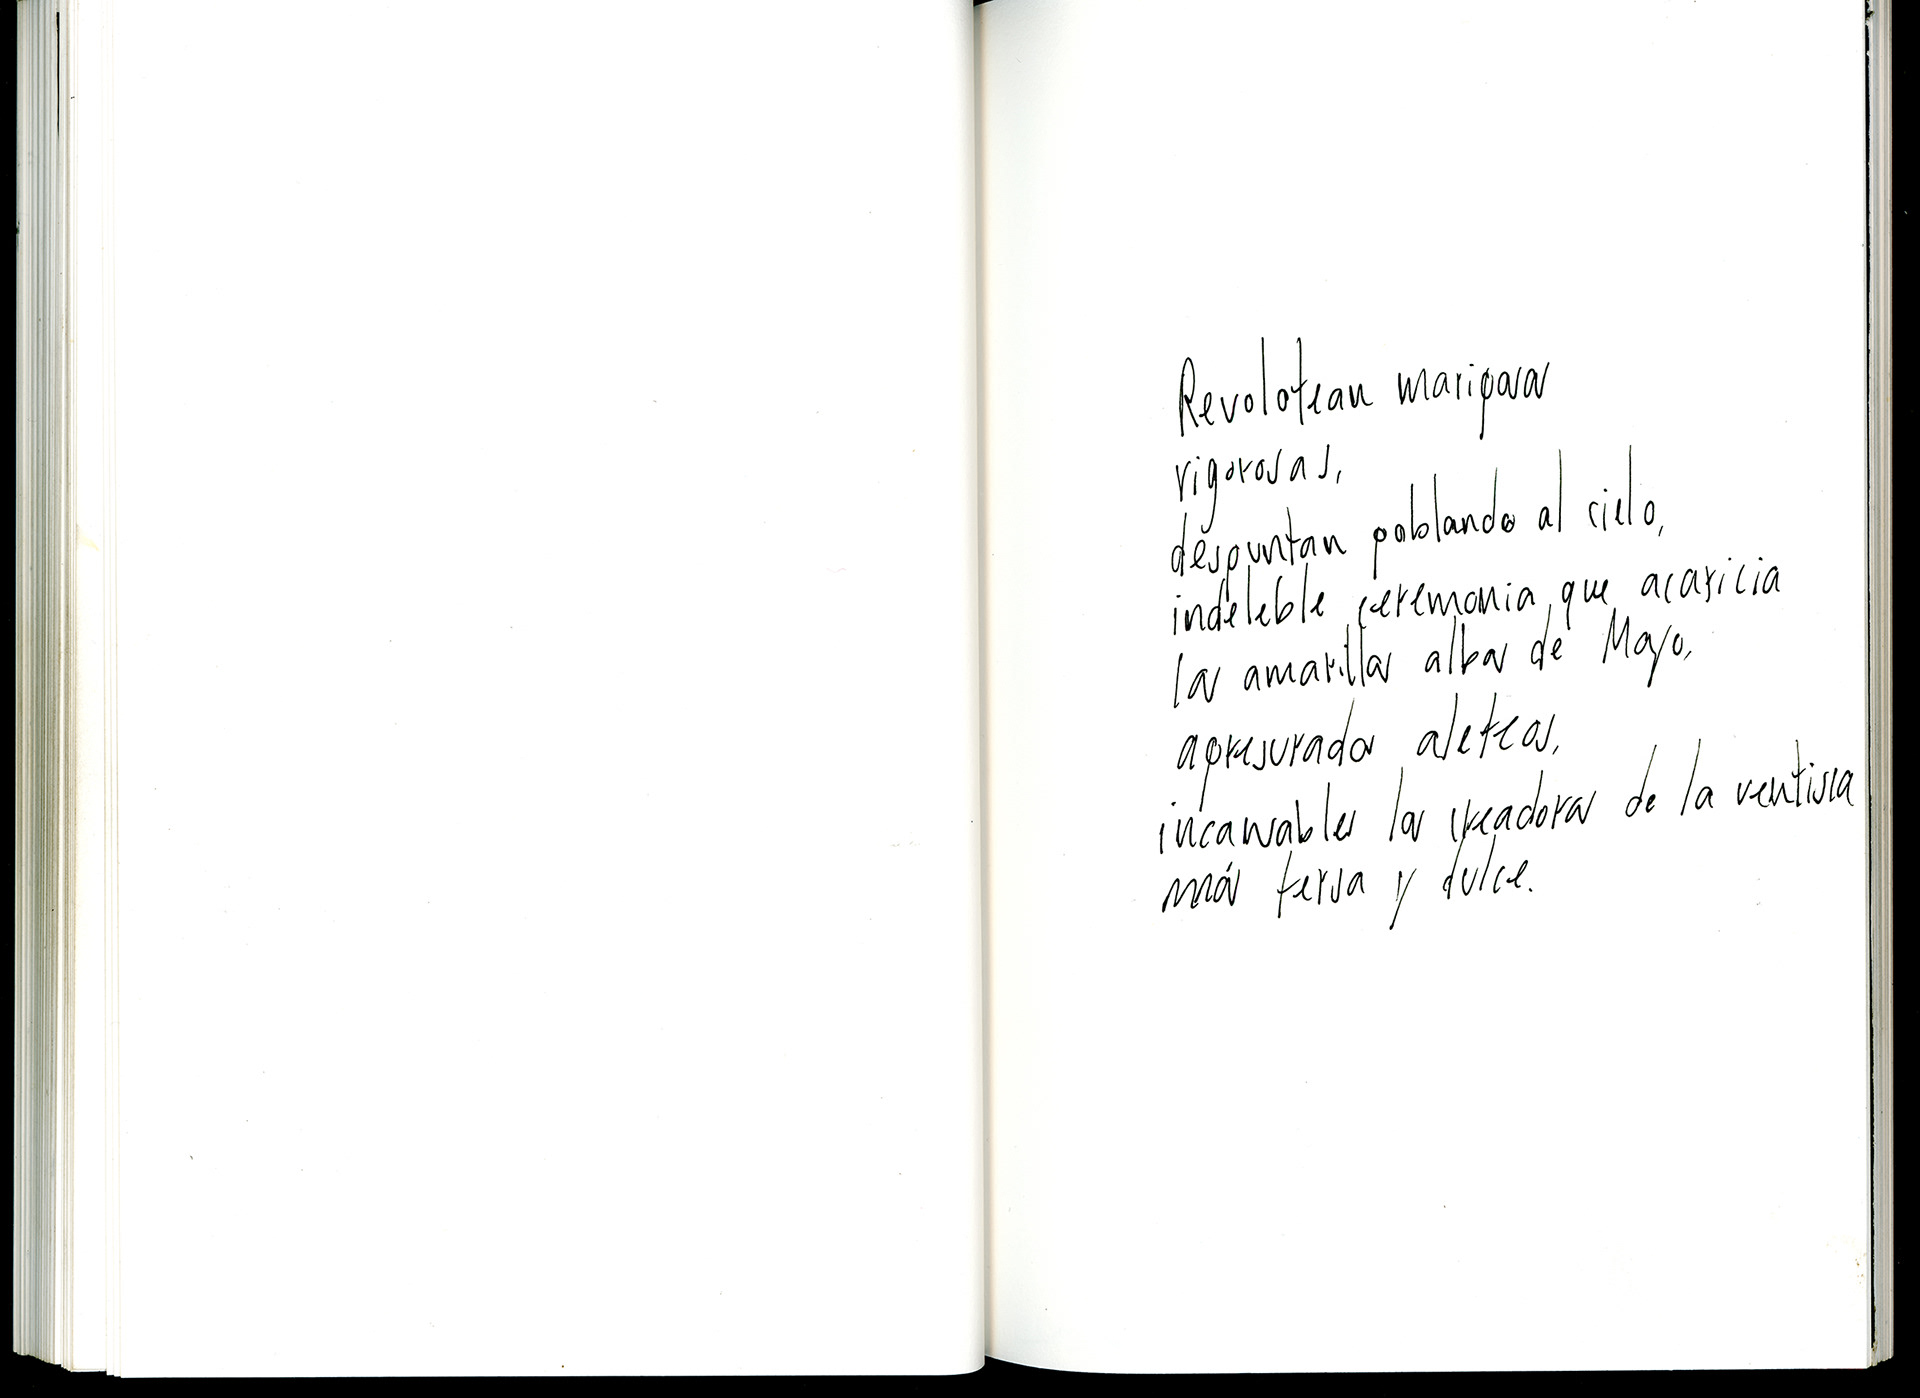 Revolotean mariposas
rigorosas,
despuntan poblando al cielo,
indeleble ceremonia que acaricia
las amarillas albas de Mayo,
apresurados aleteos,
incansables las creadoras de la ventisca
más tersa y dulce.